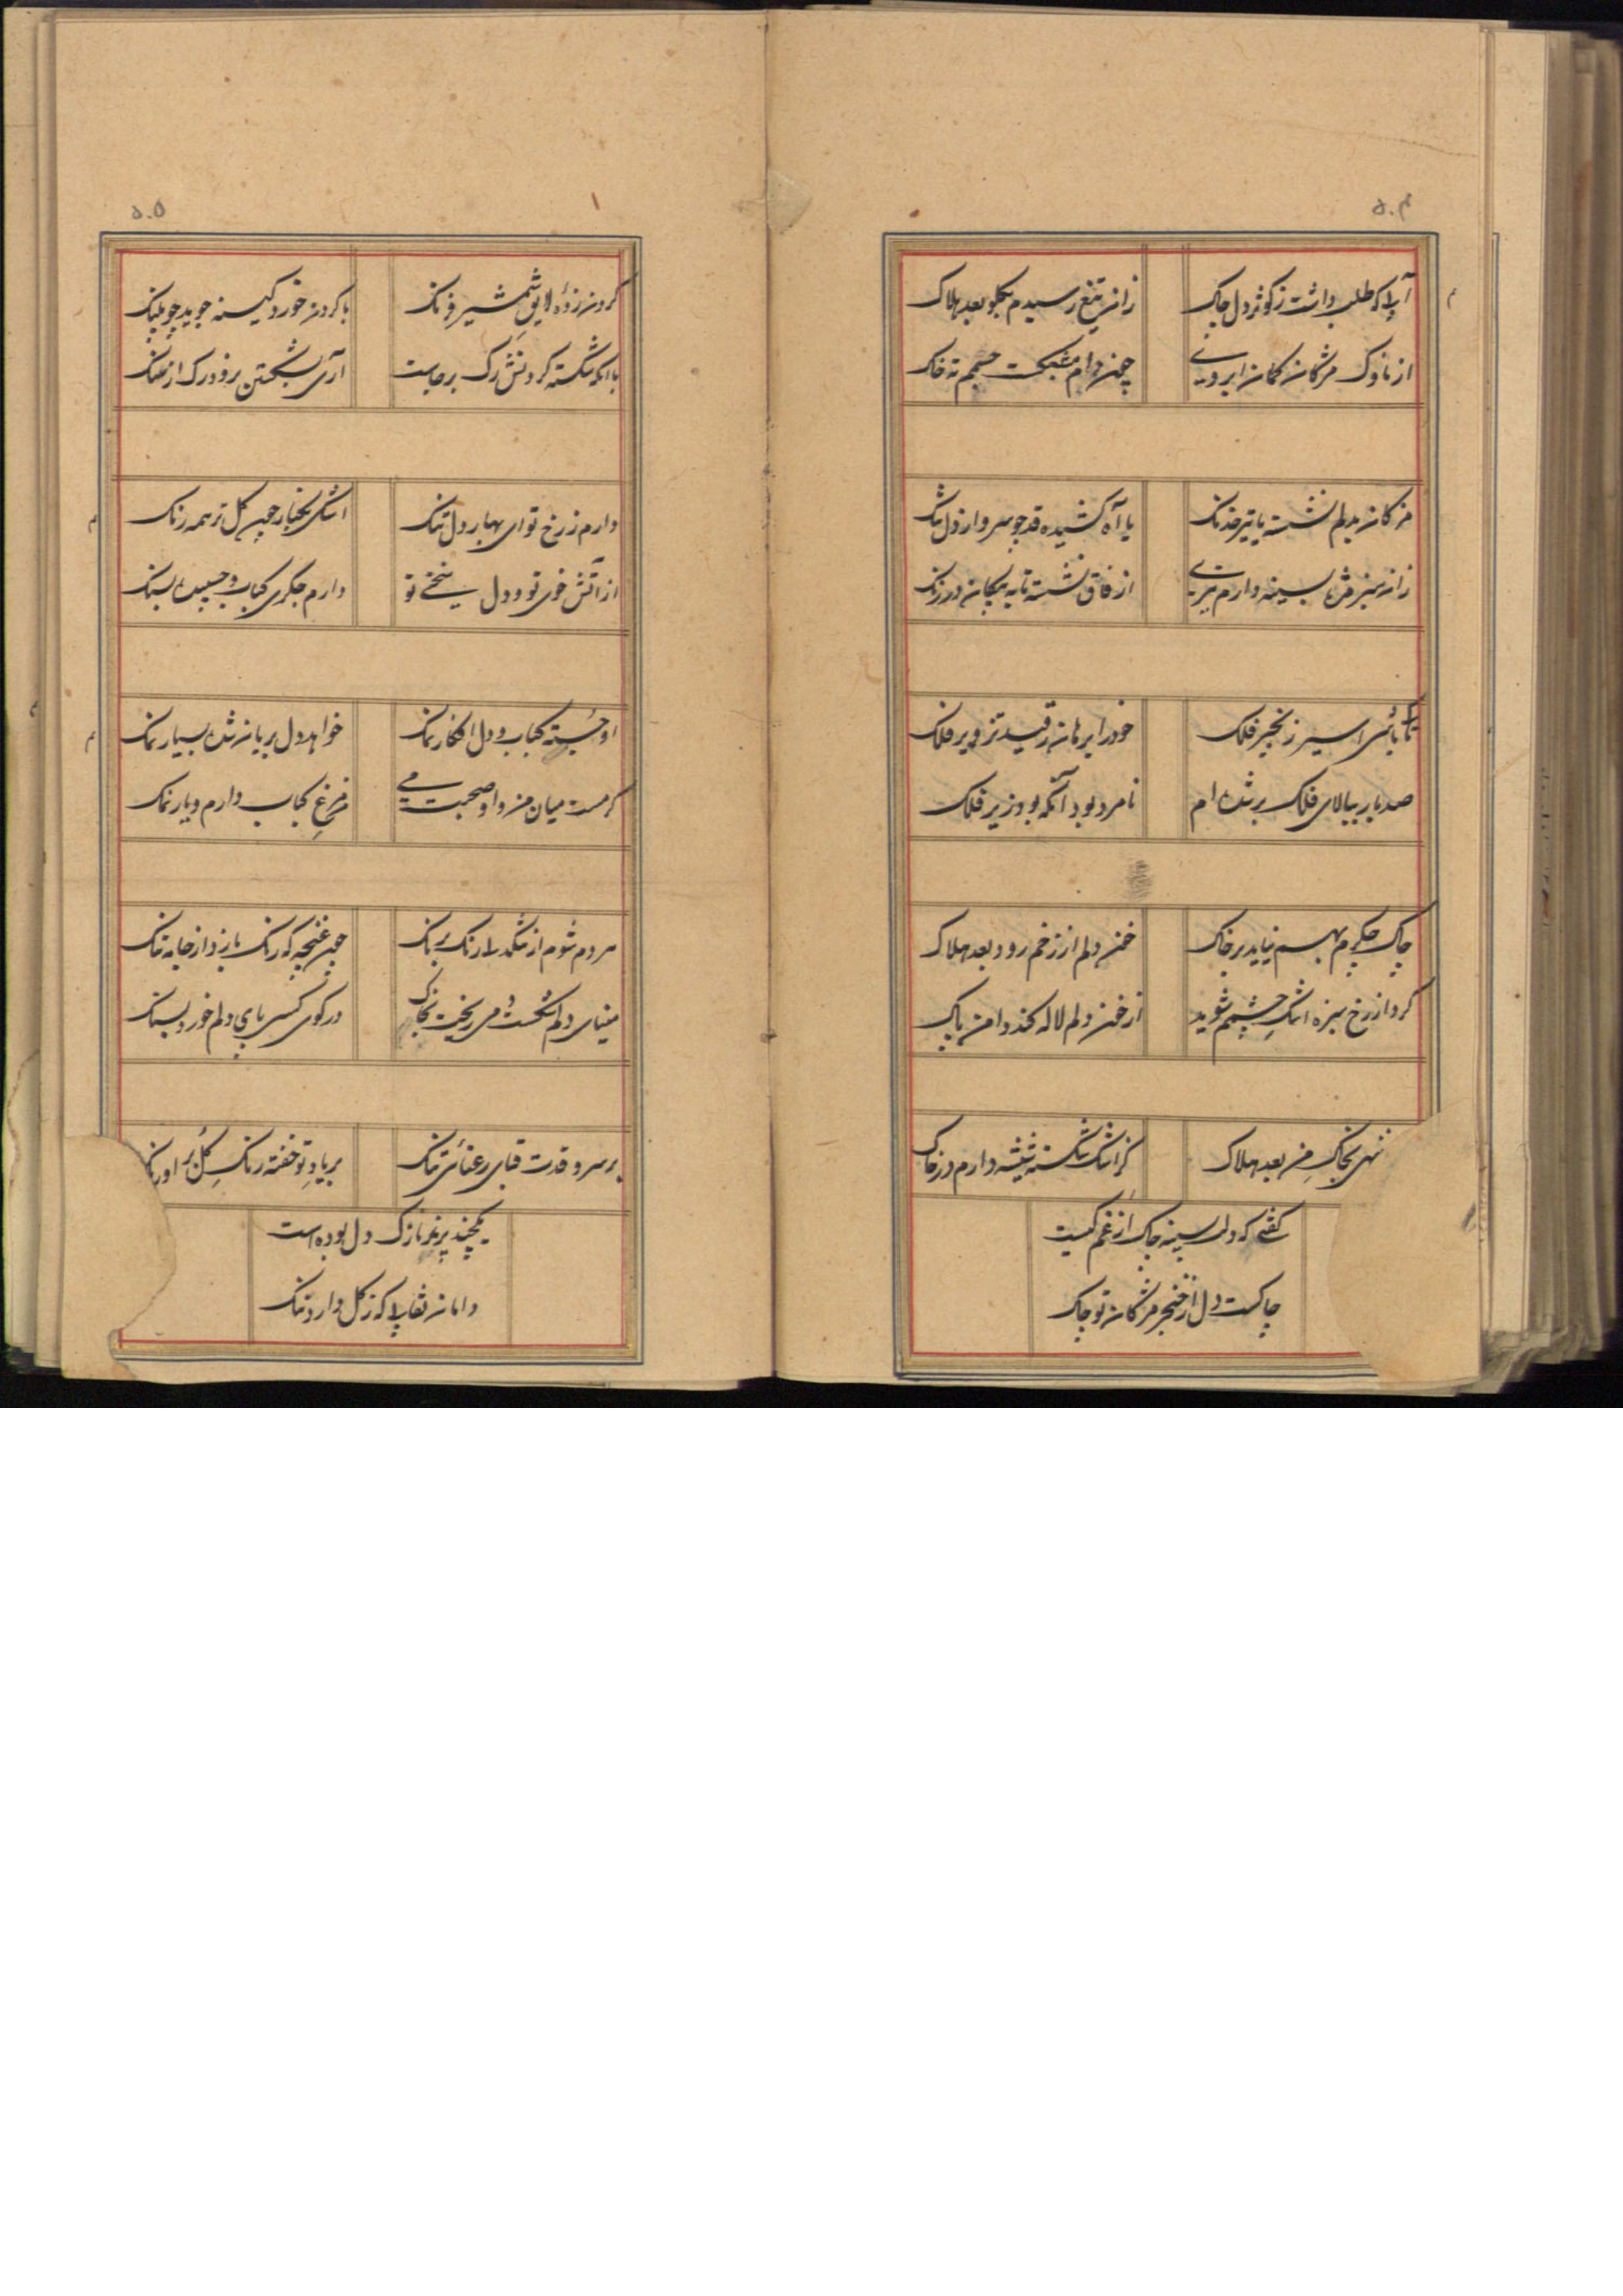 ۵۰۴
آبی که طلب داشت ز کوثر دل چاک
زان تیغ رسیدم بگلو بعد هلاک
از ناوک مژگان کمان ابرویی
چون دام مشبکست جسمم ته خاک
مژگان بدلم نشسته یا تیر خدنگ
یا آه کشیده قد چو سرو از دل تنگ
زان سبز بسینه دارم تیری
از فاق نشسته تا به پیکان در زنگ
تا بائی اسیر زنجیر فلک
خود را برهان ز قید تزویر فلک
صد بار ببالای فلک بر شده ام
نامرد بود آنکه بود زیر فلک
چاک جگرم بهم نیاید بر خاک
خون دلم از زخم رود بعد هلاک
گرد از رخ سبزه اشک چشمم شوید
از خون دلم لاله کند دامن پاک
بخاک من بعد هلاک
کز اشک شکسته شیشه دارم در خاک
گفتی که دلت سینه چاک از غم کیست
چاکست دل از خنجر مژگان تو چاک
۵۰۵
گردن زده لایق شمشیر فرنگ
با گردن خورد کینه جوید چو پلنگ
با آنکه شکسته گردنش رگ برجاست
آری بشکستن نرود رگ از سنگ
دارم ز رخ تو ای بهار دل تنگ
اشکی بکنار چون گل تر همه رنگ
از آتش خوی تو و دل سختی تو
دارم جگری کباب و چسبیده بسنگ
او خسته کباب و دل افگار نمک
خواهد دل بریان شده بسیار نمک
گرمست میان من و او صحبت می
من مرغ کباب دارم و یار نمک
هر دم شوم از تنگدلی رنگ برنگ
چون غنچه که رنگ بازد از جامه تنگ
مینای دلم شکست و می ریخت بخاک
در کوی کسی پای دلم خورد بسنگ
بر سرو قدت قبای رعنائی تنگ
بر یاد تو خفته رنگ گل بر اورنگ
یکچند پرند نازک دل بوده است
دامان نقابی که ز گل دارد ننگ